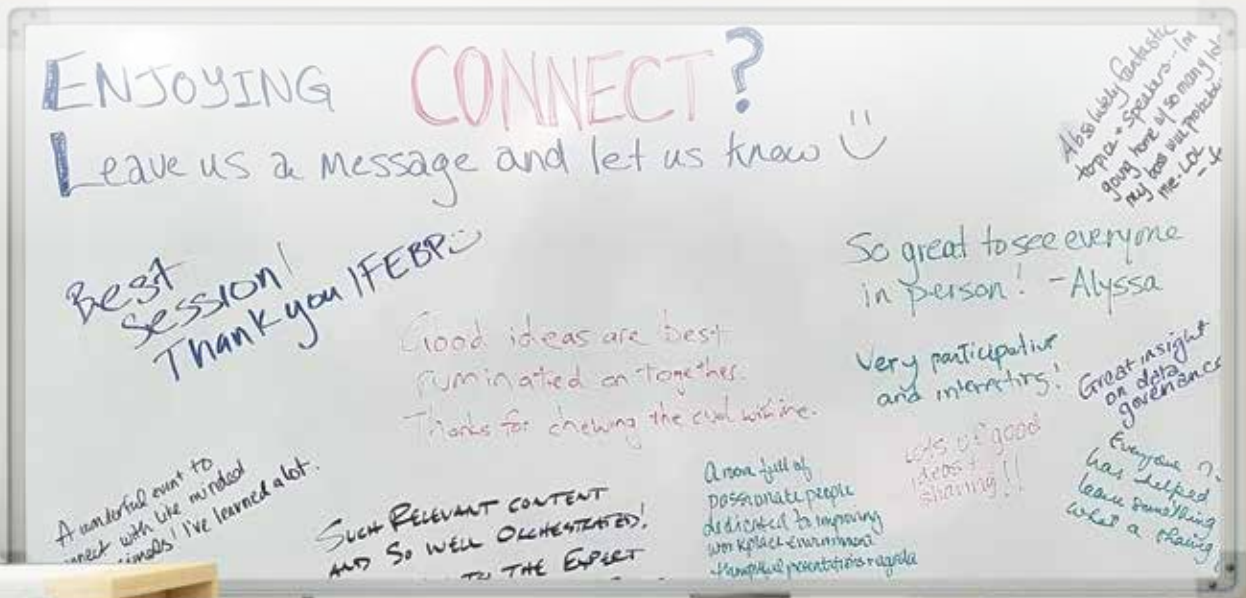 ENJOYING CONNECT?
Leave us a message and let us know
Absolutely fantastic
topics + speakers. I'm
going home w/ so many
my boss will probably
me. LOL
Best
Session!
Thank you IFEBP
So great to see everyone
in person! -Alyssa
Good ideas are best
ruminated on together.
Thanks for chewing the cud with me.
Very participative
and interesting!
Great insight
on data
governance
Lots of good
ideas +
sharing!!
Everyone
has helped
leave something
what a sharing
A wonderful event to
nnect with like minded
I've learned a lot.
SUCH RELEVANT CONTENT
AND SO WELL ORCHESTRATED!
TO THE EXPERT
A room full of
passionate people
dedicated to improving
workplace environment